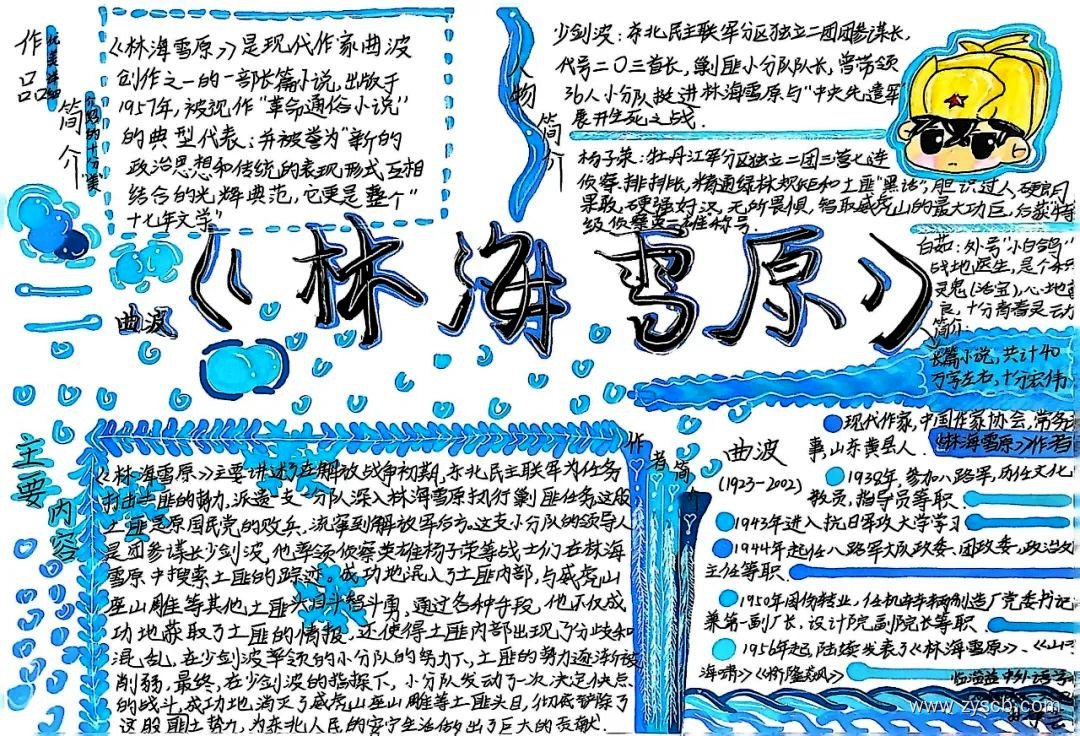 作品简介
《林海雪原》是现代作家曲波
创作之一的一部长篇小说,出版于
1957年,被视作“革命通俗小说”
的典型代表,并被誉为“新的
政治思想和传统的表现形式互相
结合的光辉典范,它更是整个“
十七年文学”
人物简介
少剑波:东北民主联军分区独立二团团参谋长,
代号二〇三首长,剿匪小分队队长,曾带领
36人小分队挺进林海雪原与“中央先遣军”
展开生死之战.
杨子荣:牡丹江军分区独立二团三营七连
侦察排排长,精通绿林规矩和土匪“黑话”,胆识过人,
果敢,硬强好汉,无所畏惧,智取威虎山的最大功臣,后获特
级侦察英雄称号.
白茹:外号“小白鸽”
战地医生,是个
灵鬼(活宝),心地
良,十分有着灵动
简介:
长篇小说,共计40
万字左右,十分宏伟
《林海雪原》
曲波
主要内容
《林海雪原》主要讲述了在解放战争初期,东北民主联军为任务
打击土匪的势力,派遣一支小分队深入林海雪原执行剿匪任务,这股
土匪是原国民党的败兵,流窜到解放军后方。这支小分队的领导人
是团参谋长少剑波,他率领侦察英雄杨子荣等战士们在林海
雪原中搜索土匪的踪迹,成功地混入了土匪内部,与威虎山
座山雕等其他土匪头目斗智斗勇,通过各种手段,他不仅成
功地获取了土匪的情报,还使得土匪内部出现了分歧和
混乱,在少剑波率领的小分队的努力下,土匪的势力逐渐被
削弱,最终,在少剑波的指挥下,小分队发动了一次决定
的战斗,成功地消灭了威虎山座山雕等土匪头目,彻底铲除了
这股匪土势力,为东北人民的安宁生活做出了巨大的贡献.
作者简
曲波
(1923-2002)
现代作家,中国作家协会,常务
事山东黄县人.《林海雪原》作者
1938年,参加八路军,历任文化
教员,指导员等职.
1943年进入抗日军政大学学习
1944年起任八路军大队政委、团政委,政治
主任等职.
1950年因伤转业,任机车车辆制造厂党委书记
兼第一副厂长,设计院副院长等职.
1956年起,陆续发表了《林海雪原》、《山
海啸》《桥隆飙》
www.zyscb.com